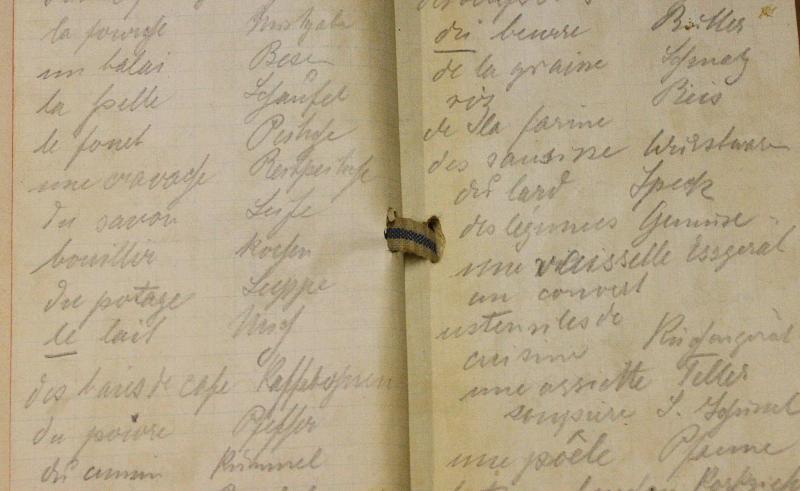 la fourage
un balai Besen
la pelle Schaufel
le fouet Peitsche
une cravache Reitpeitsche
du savon Seife
bouillir kochen
du potage Suppe
le lait Milch
des baies de cafe Kaffebohnen
du poivre Pfeffer
du cumin Kümmel
du beurre Butter
de la graisse Schmalz
riz Reis
de la farine
des saucisse Wurstwaren
du lard Speck
des légumes Gemüse
une vaisselle Essgerät
un couvert
ustensiles de
cuisine Küchengerät
une assiette Teller
soupière S. Schüssel
une poêle Pfanne